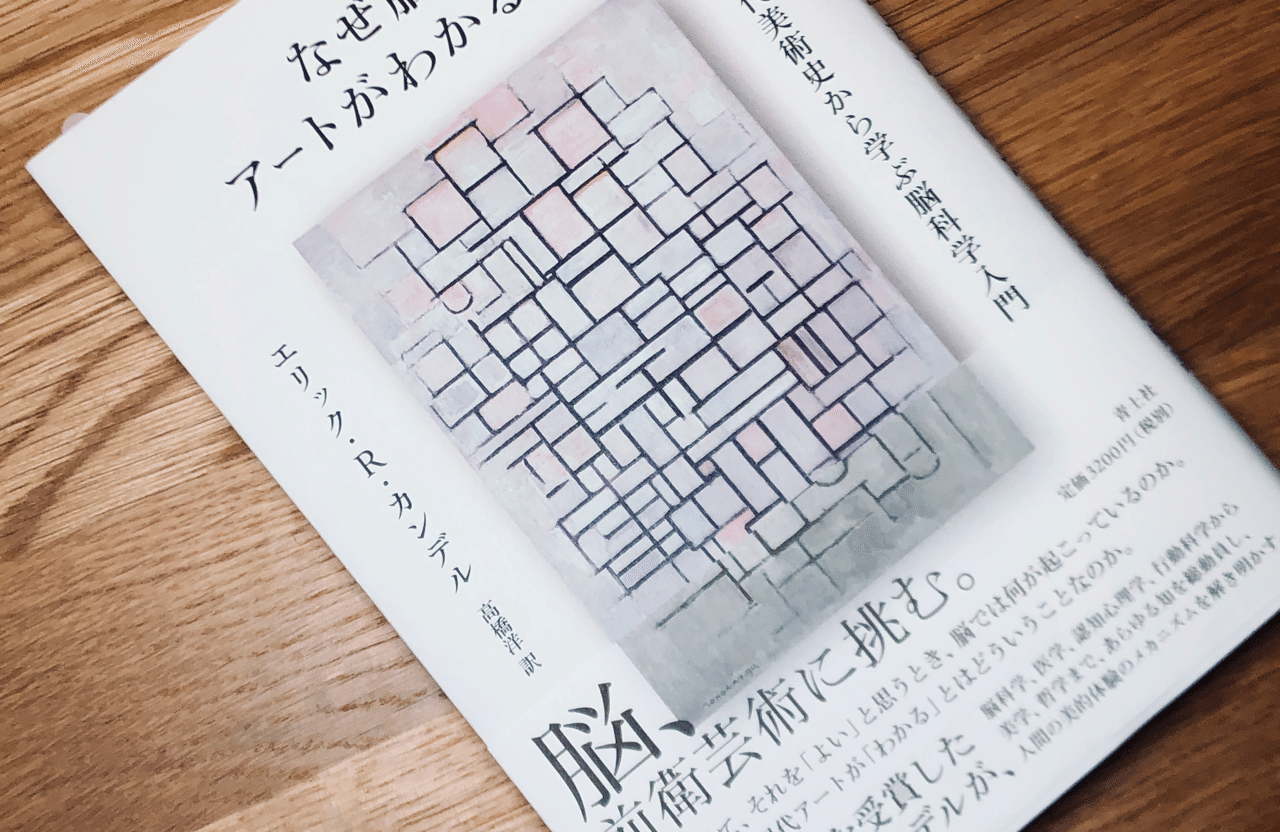 なぜ脳
アートがわかる
代美術史から学ぶ脳科学入門
エリック・R・カンデル 高橋洋 訳
青土社
定価 3200円(税別)
脳、
前衛芸術に挑む。
それを「よい」と思うとき、脳では何が起こっているのか。
代アートが「わかる」とはどういうことなのか。
脳科学、医学、認知心理学、行動科学から
美学、哲学まで、あらゆる知を総動員し、
人間の美的体験のメカニズムを解き明かす
を受賞した
デルが、